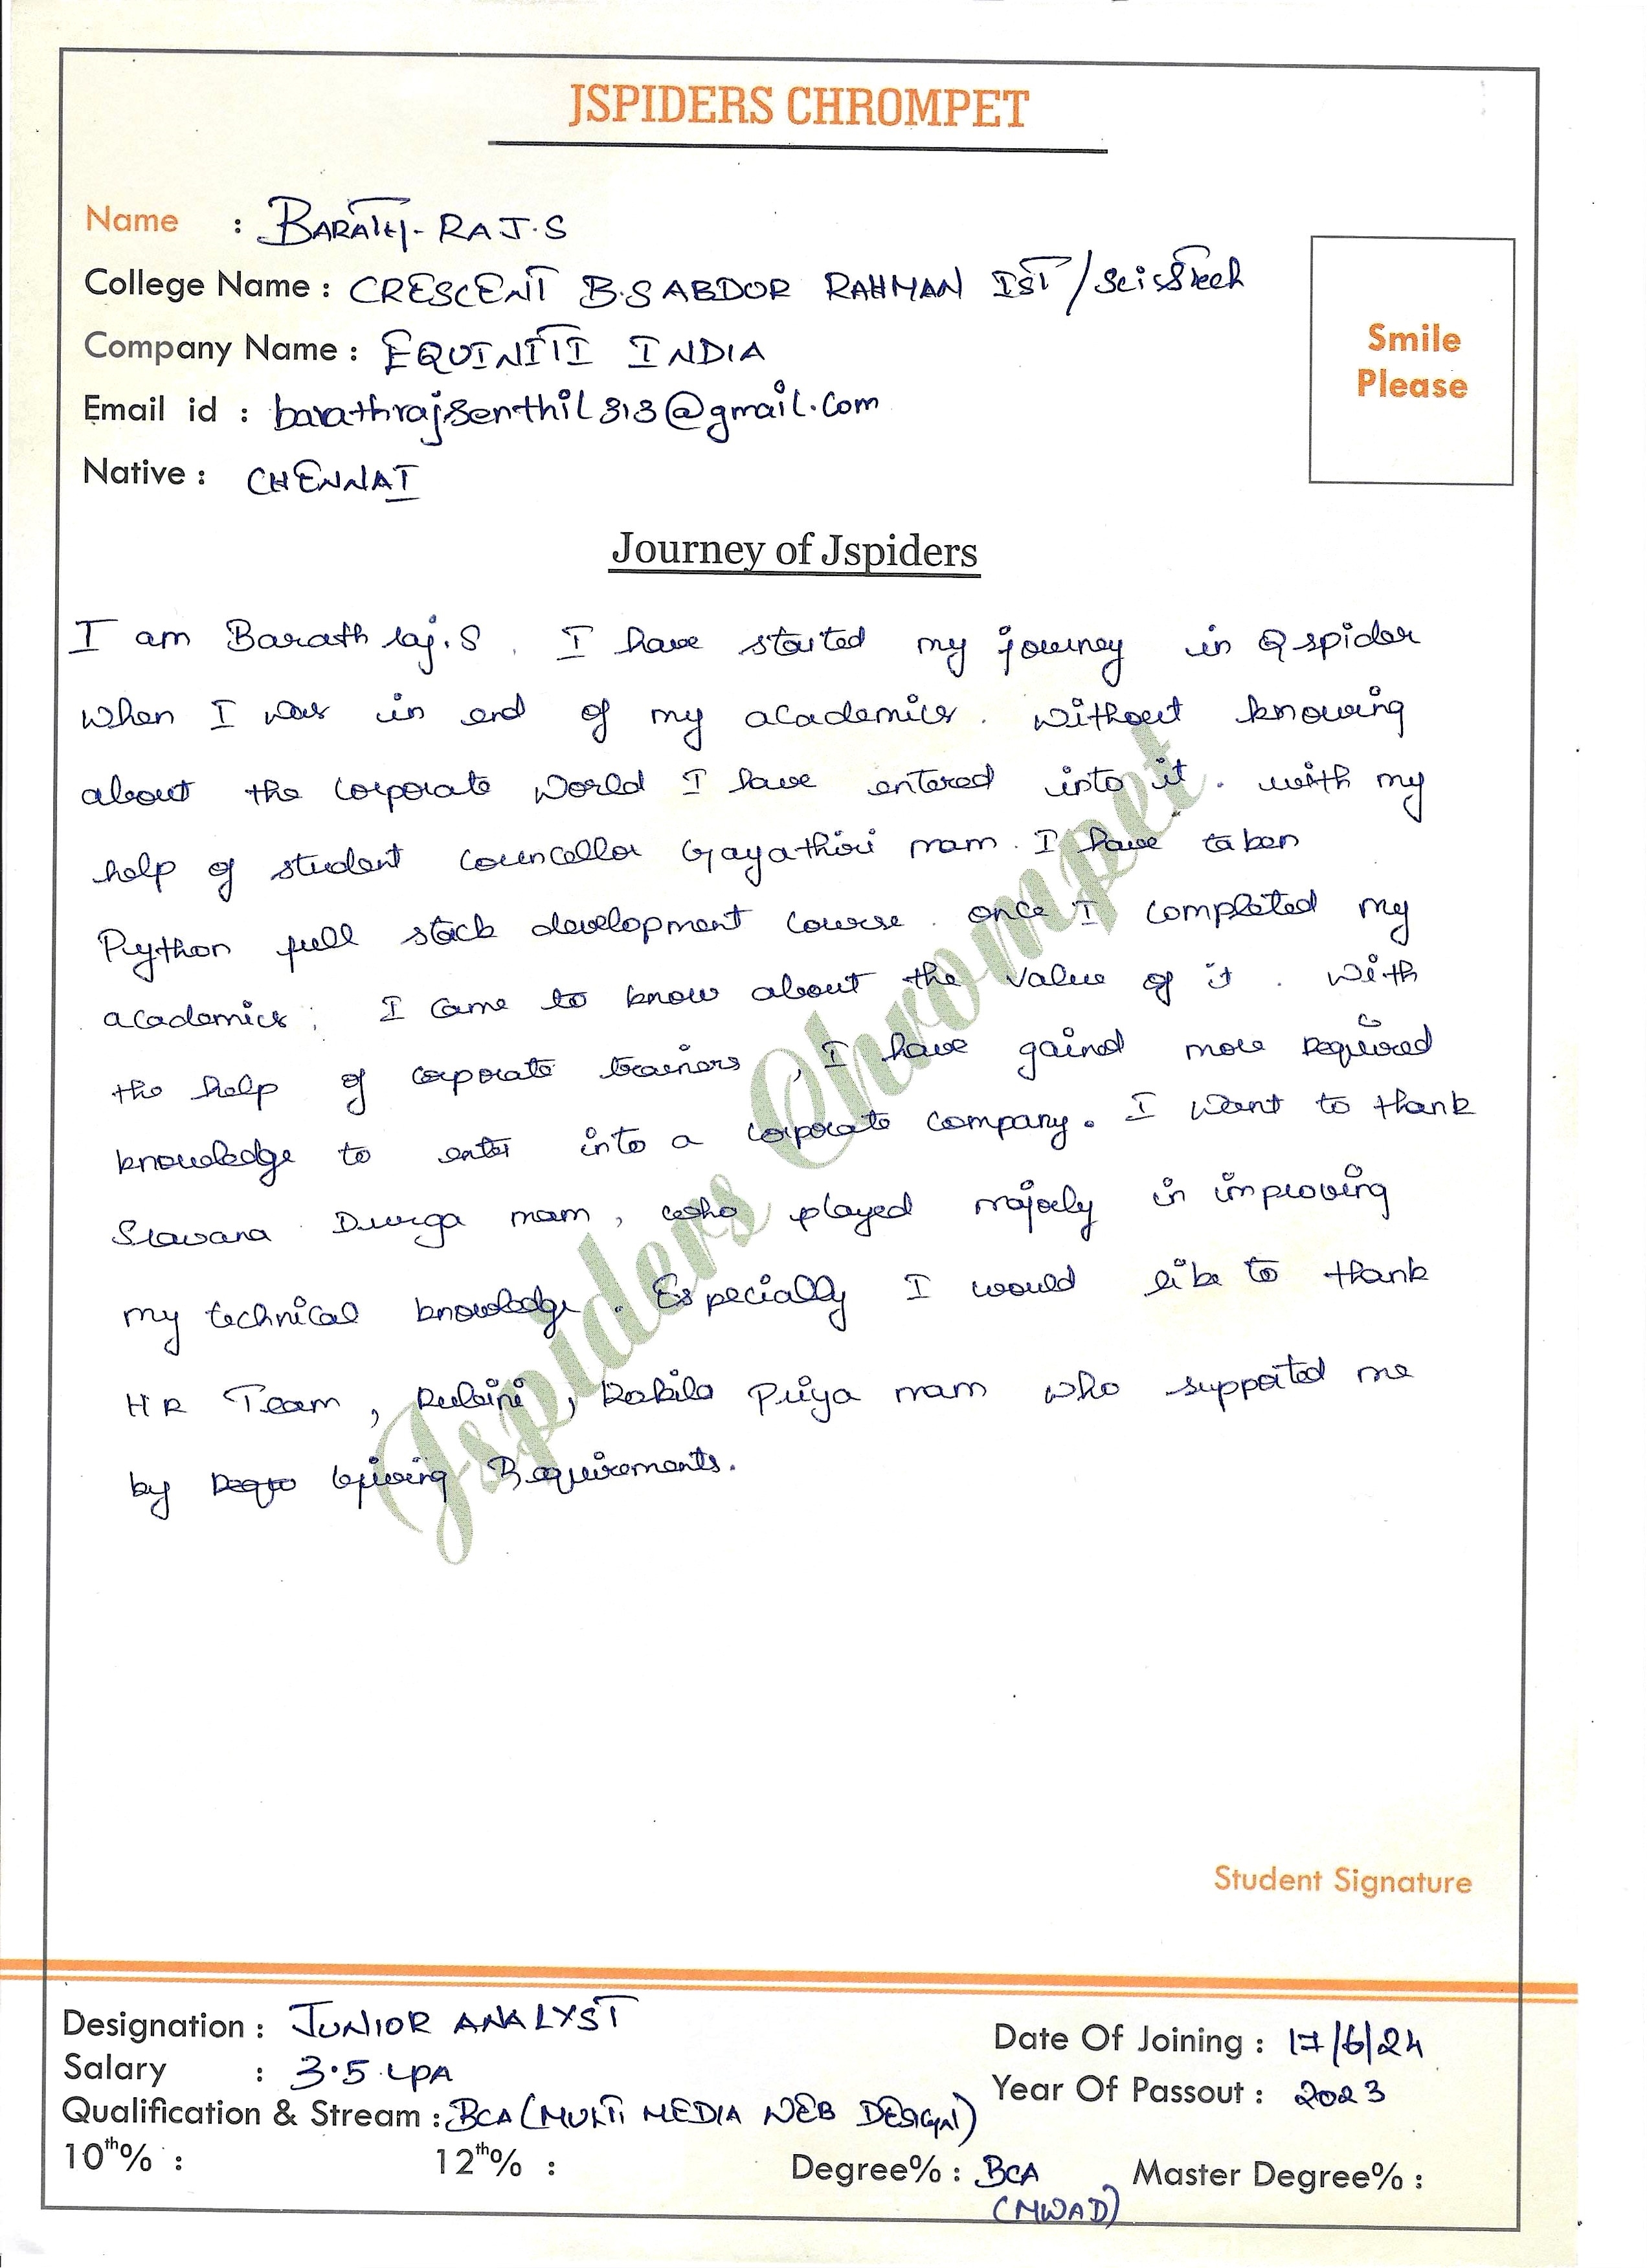 JSPIDERS CHROMPET
Name : BARATH-RAJ.S
College Name : CRESCENT B.S ABDOR RAHMAN IST /
Smile
Please
Company Name : EQUINITI INDIA
Email id : barathrajsenthil313@gmail.com
Native : CHENNAI
Journey of Jspiders
I am Barath raj.S. I have started my journey in Qspider
when I was in end of my academics. without knowing
about the corporate world I have entered into it. with my
help of student councellor Gayathiri mam. I have taken
Python full stack development course. once I completed my
academics, I came to know about the value of it. with
the help of corporate trainers, I have gained more required
knowledge to enter into a corporate company. I want to thank
Sravana Durga mam, who played majorly in improving
my technical knowledge. Especially I would like to thank
HR Team, Kokila Priya mam who supported me
by Giving Requirements.
Jspiders Chrompet
Student Signature
Designation : JUNIOR ANALYST
Date Of Joining : 17/6/24
Salary : 3.5 LPA
Year Of Passout : 2023
Qualification & Stream : BCA (MULTI MEDIA WEB DESIGN)
10th% : 12th% : Degree% : BCA Master Degree% :
(MWAD)